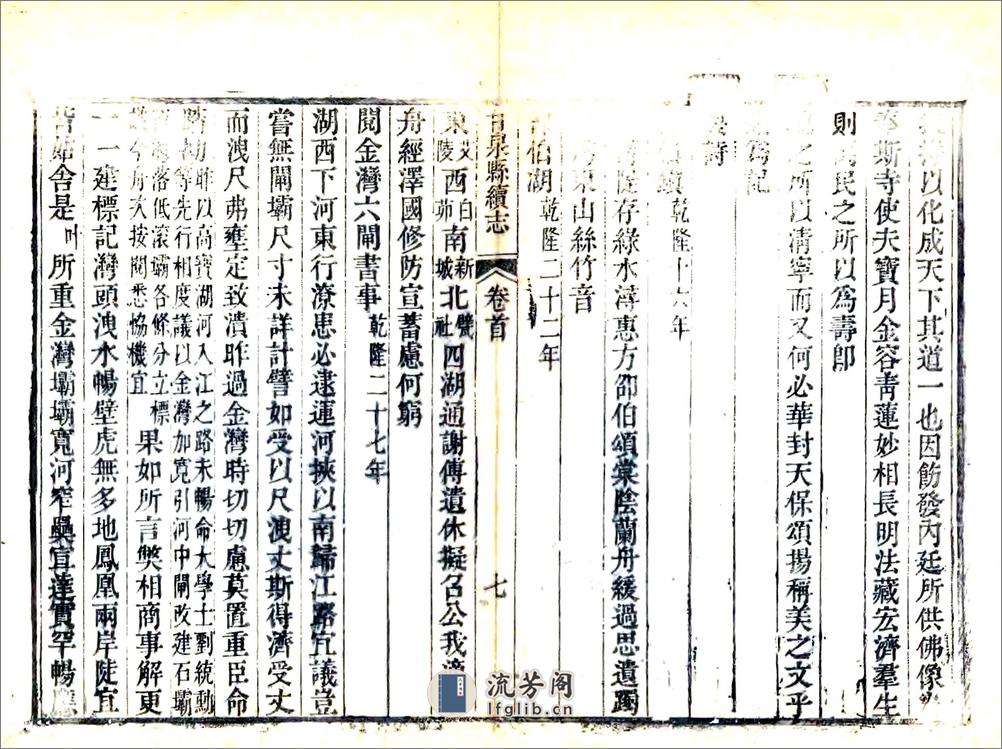 以化成天下其道一也因飭發內廷所供佛像
斯寺使夫寶月金容靑蓮妙相長明法藏宏濟羣生
則民之所以爲壽卽
之所以淸寧而又何必華封天保頌揚稱美之文乎
爲記
詩
鎭乾隆十六年
隆存綠水溥惠方邵伯頌棠陰蘭舟緩過思遺躅
東山絲竹音
伯湖乾隆二十二年
泉縣續志
卷首
七
艾陵西白茆南新城北甓社四湖通謝傅遺休擬召公我
舟經澤國修防宣蓄慮何窮
閱金灣六閘書事乾隆二十七年
湖西下河東行潦患必逮運河挾以南歸江路宜議豈
嘗無閘壩尺寸未詳計譬如受以尺洩丈斯得濟受丈
而洩尺弗壅定致潰昨過金灣時切切慮莫置重臣命
昨以高寶湖河入江之路未暢命大學士劉統勳
等先行相度議以金灣加寬引河中閘改建石壩
落低滾壩各條分立標
今舟次按閱悉協機宜
果如所言獘相商事解更
一建標記灣頭洩水暢壁虎無多地鳳凰兩岸陡宜
舍是所重金灣壩壩寬河窄纍宜達實罕暢
流芳阁
lfglib.cn